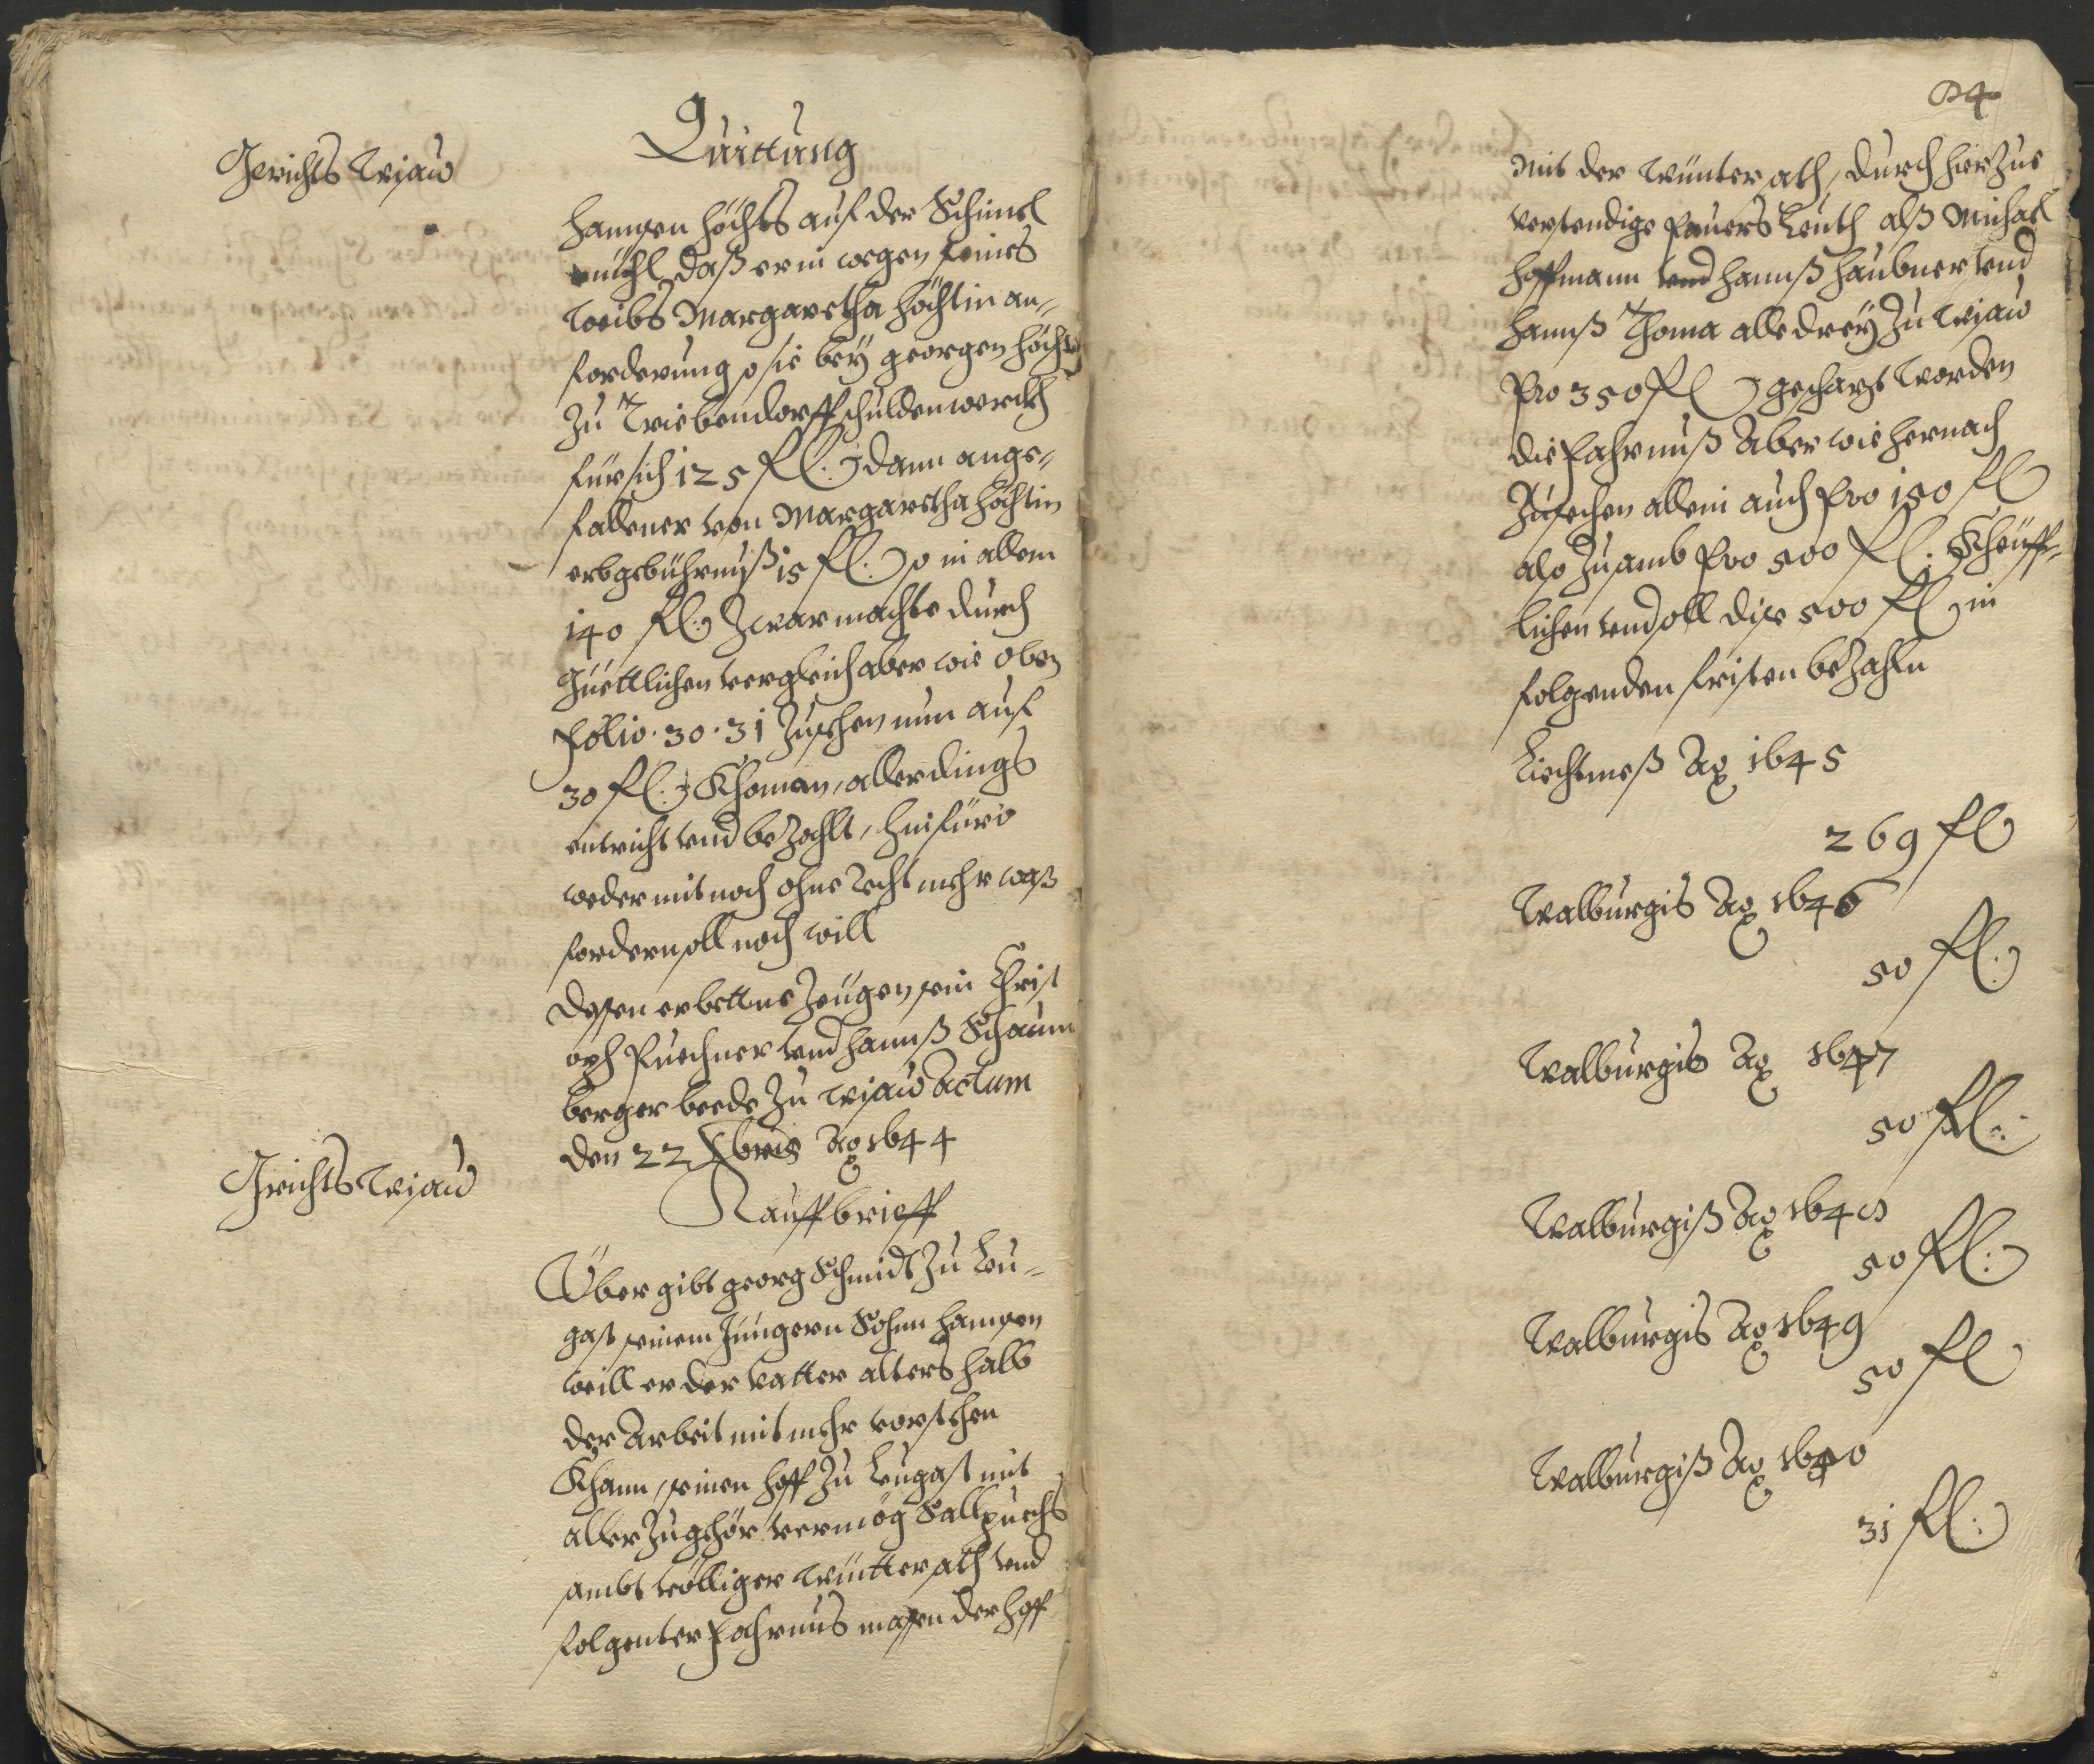 Gerichts Wisaw
Quittung
Hannsen Höchts auf der Schiml
mühl, daß er in wegen seines
Weibs Margaretha Höchtin an-
forderung so sie bey Georgen Höcht
zu Triebendorff schuldenwerckh
für sich 125 fl. dann ange-
fallener von Margaretha Höchtin
erbgebührnuß 15 fl. so in allem
140 fl. zwar machte durch
Güettlichen vergleich aber wie oben
Folio. 30. 31 zusehen nun auf
30 fl. Khomen, allerdings
entricht vnd bezahlt, hinfüro
weder mit noch ohne Recht mehr was
fordern soll noch will
dessen erbettne Zeugen sein Christ
oph Puechner vnd Hannß Schaum
berger beede zu Wisaw Actum
den 22 Xbris Ao 1644
Grichts Wisaw
Kauffbrieff
Über gibt Georg Schmidt zu Leu-
gast seinem Jüngern Sohnn Hannsen
weill er der vatter alters halb
der Arbeit nit mehr vorstehen
Khann, seinen Hoff zu Leugast mit
aller zugehör vermög Sallpuechs
ambt völliger Wintter ath vnd
folgenter Fahrnus massen der Hoff
84
mit der Winter sath, durch hierzue
verstendige Pauers Leuth alß Michael
Hoffmann vnd Hannß Haubner vnd
Hannß Thoma alle drey zu Wisaw
Pro 350 fl geschäzt worden
die Fahrnuß Aber wie hernach
Zusechen allein auch Pro 150 fl
also zusamb Pro 500 fl. Kheuff-
lichen vnd soll dise 500 fl in
folgenden fristen bezahln
Liechtmeß Ao 1645
269 fl
Walburgis Ao 1646
50 fl.
Walburgis Ao 1647
50 fl.
Walburgiß Ao 1648
50 fl.
Walburgis Ao 1649
50 fl
Walburgiß Ao 1640
31 fl.